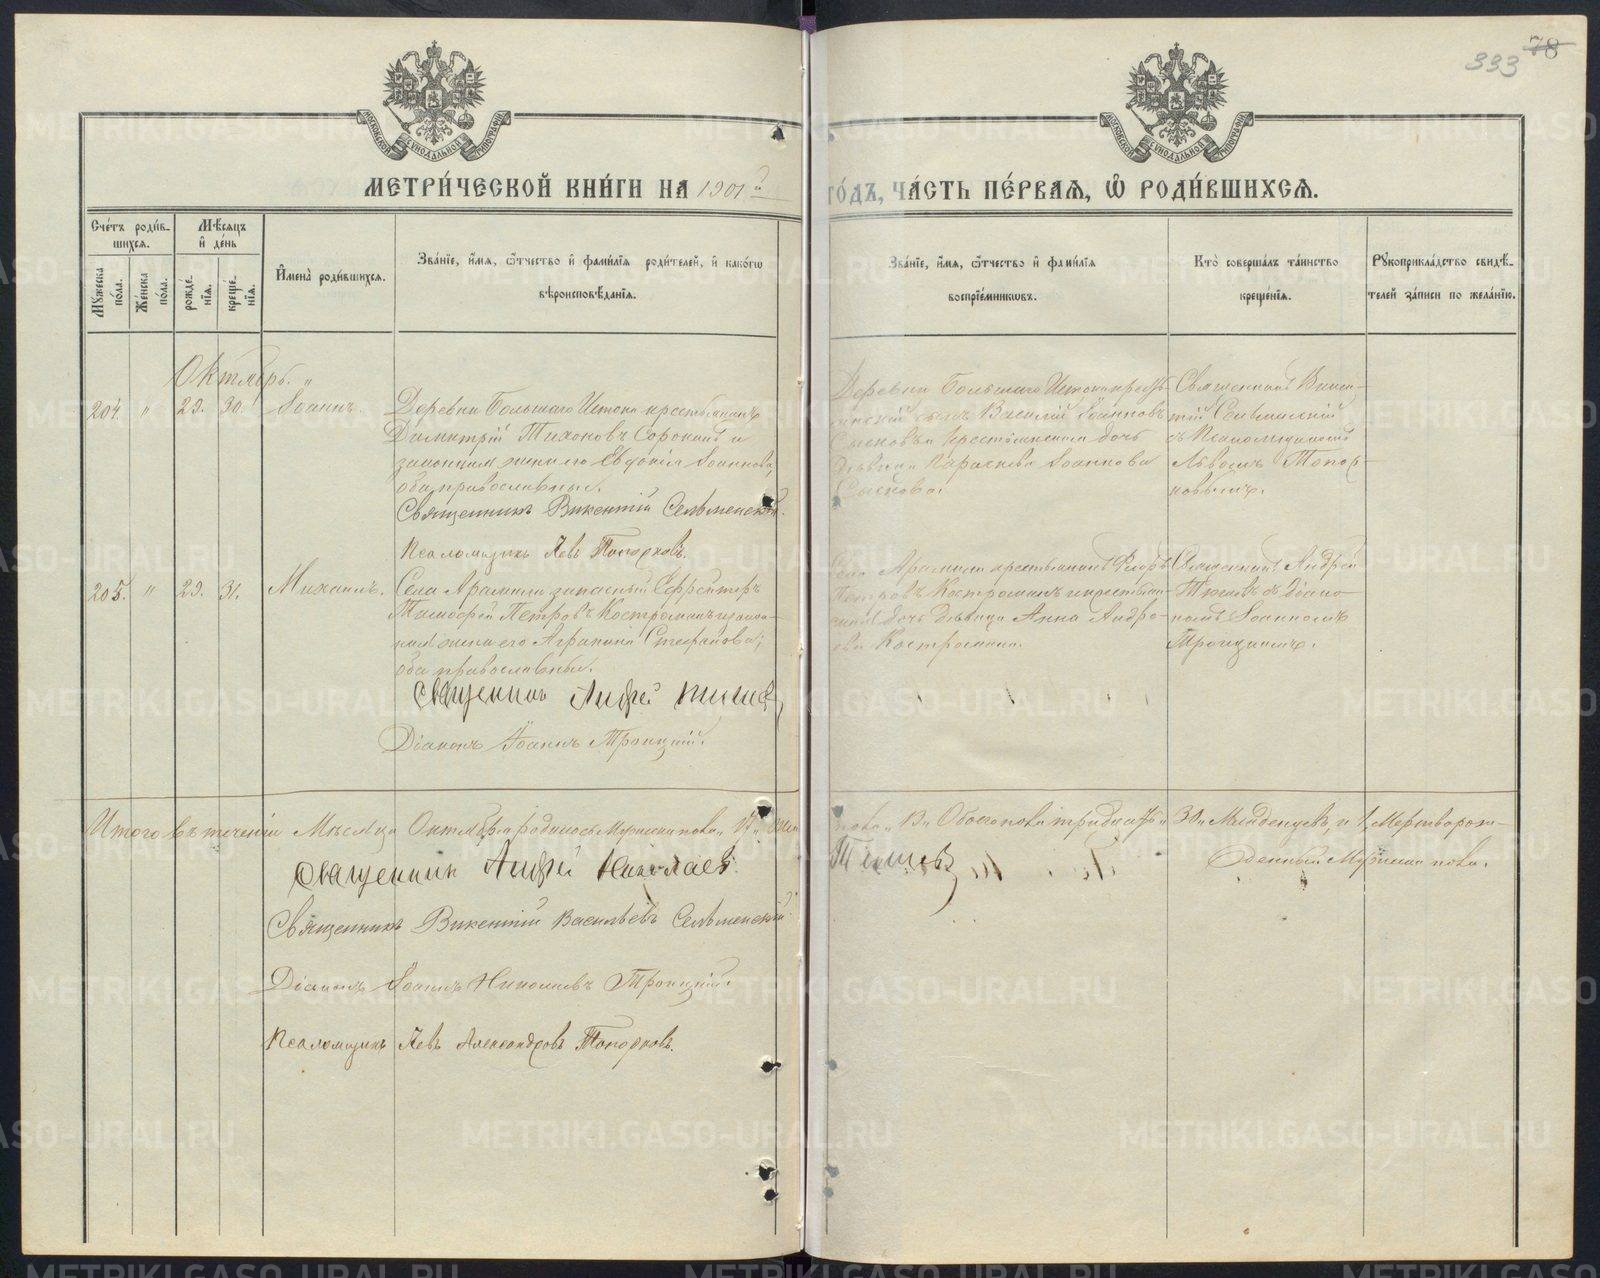 333 78
МОСКОВСКОЙ СѴНОДАЛЬНОЙ ТИПОГРАФІИ
МОСКОВСКОЙ СѴНОДАЛЬНОЙ ТИПОГРАФІИ
МЕТРИ́ЧЕСКОЙ КНИ́ГИ НА 1901й ГО́ДЪ, ЧА́СТЬ ПЕ́РВАЯ, Ѡ РОДИ́ВШИХСЯ.
Сче́тъ роди́в-
шихся.
Мѣ́сяцъ
и де́нь
Мꙋ́жеска
по́ла.
Же́нска
по́ла.
рожде́-
нїя.
креще́-
нїя.
Имена̀ роди́вшихся.
Зва́нїе, и́мя, ѻ́тчество и фами́лїя роди́телей, и како́гѡ
вѣроисповѣ́данїя.
Зва́нїе, и́мя, ѻ́тчество и фами́лїя
воспрїе́мникѡвъ.
Кто̀ соверша́лъ та́инство
креще́нїя.
Рꙋкоприкла́дство свидѣ́-
телей за́писи по жела́нїю.
Октябрь. "
204. " 29. 30. Іоаннъ.
Деревни Большаго Истока крестьянинъ
Димитрій Тихоновъ Сорокинъ и
законная жена его Евдокія Іоаннова,
оба православные.
Священникъ Викентій Сельменскій.
Псаломщикъ Левъ Топорковъ.
Деревни Большаго Истока кресть-
янскій сынъ Василій Іоанновъ
Сысковъ и крестьянская дочь
Дѣвица Параскева Іоаннова
Сыскова.
Священникъ Викен-
тій Сельменскій
съ Псаломщикомъ
Львомъ Топор-
ковымъ.
205. " 29. 31. Михаилъ.
Села Арамили запасный Ефрейторъ
Петровъ Костроминъ и закон-
ная жена его Агрипина Стефанова;
оба православные.
Священникъ Андрей
Діаконъ Іоаннъ Троицкій.
Села Арамили крестьянинъ Егоръ
Петровъ Костроминъ и крестьян-
ская дочь Дѣвица Анна Андре-
ева Костромина.
Священникъ Андрей
съ Діако-
номъ Іоанномъ
Троицкимъ.
Итого въ теченіи Мѣсяца Октября родилось Мужеска пола 17 Жен
пола 13 Обоего пола тридцать 30 Младенцевъ, и 1 Мертворож-
денный Мужеска пола.
Священникъ Андрей Николаевъ
Священникъ Викентій Васильевъ Сельменскій.
Діаконъ Іоаннъ Николаевъ Троицкій.
Псаломщикъ Левъ Александровъ Топорковъ.
METRIKI.GASO-URAL.RU